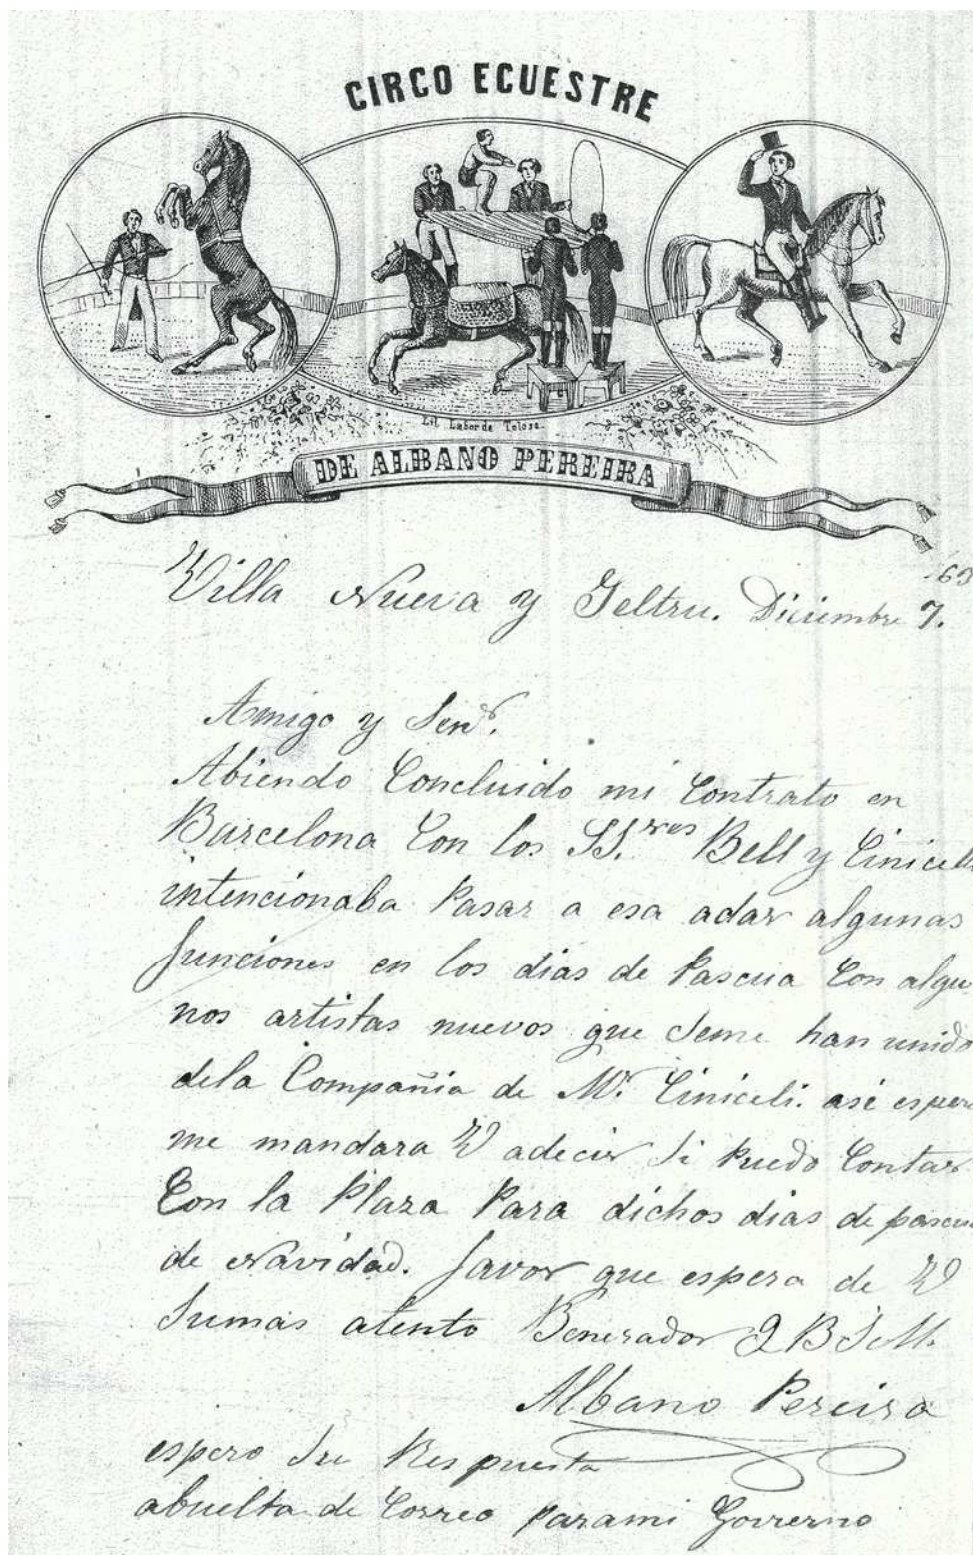 CIRCO ECUESTRE
Lit. Laborde Tolosa.
DE ALBANO PEREIRA
63
Villa Nueva y Geltru. Diciembre 7.
Amigo y Señr.
Abiendo Concluido mi Contrato en
Barcelona Con los SS.res Bell y Cinicelli
intencionaba Pasar a esa adar algunas
funciones en los dias de Pascua Con algu
nos artistas nuevos que Seme han unido
dela Compañia de Mr. Ciniceli. asi espero
me mandara V adecir Si Puedo Contar
Con la Plaza Para dichos dias de pascua
de Navidad. favor que espera de V
Sumas atento Benerador Q B S M.
Albano Pereira
espero Su Respuesta
abuelta de Correo parami Governo